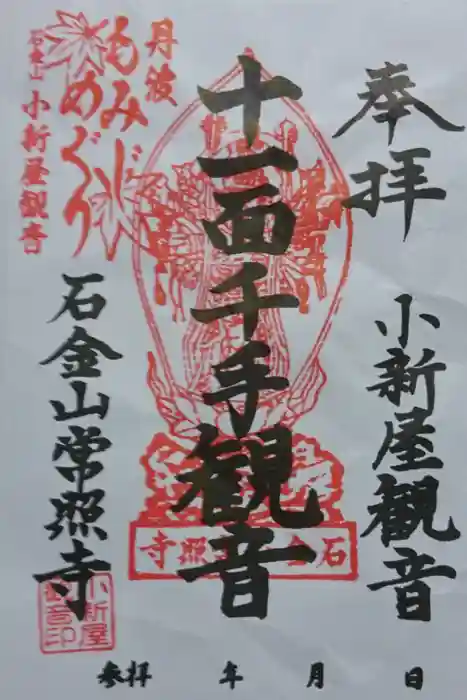 奉拝
小新屋観音
十一面千手観音
丹波
もみじ
めぐり
石金山
小新屋観音
石金山常照寺
石金 照寺
小新屋
観音印
参拝 年 月 日